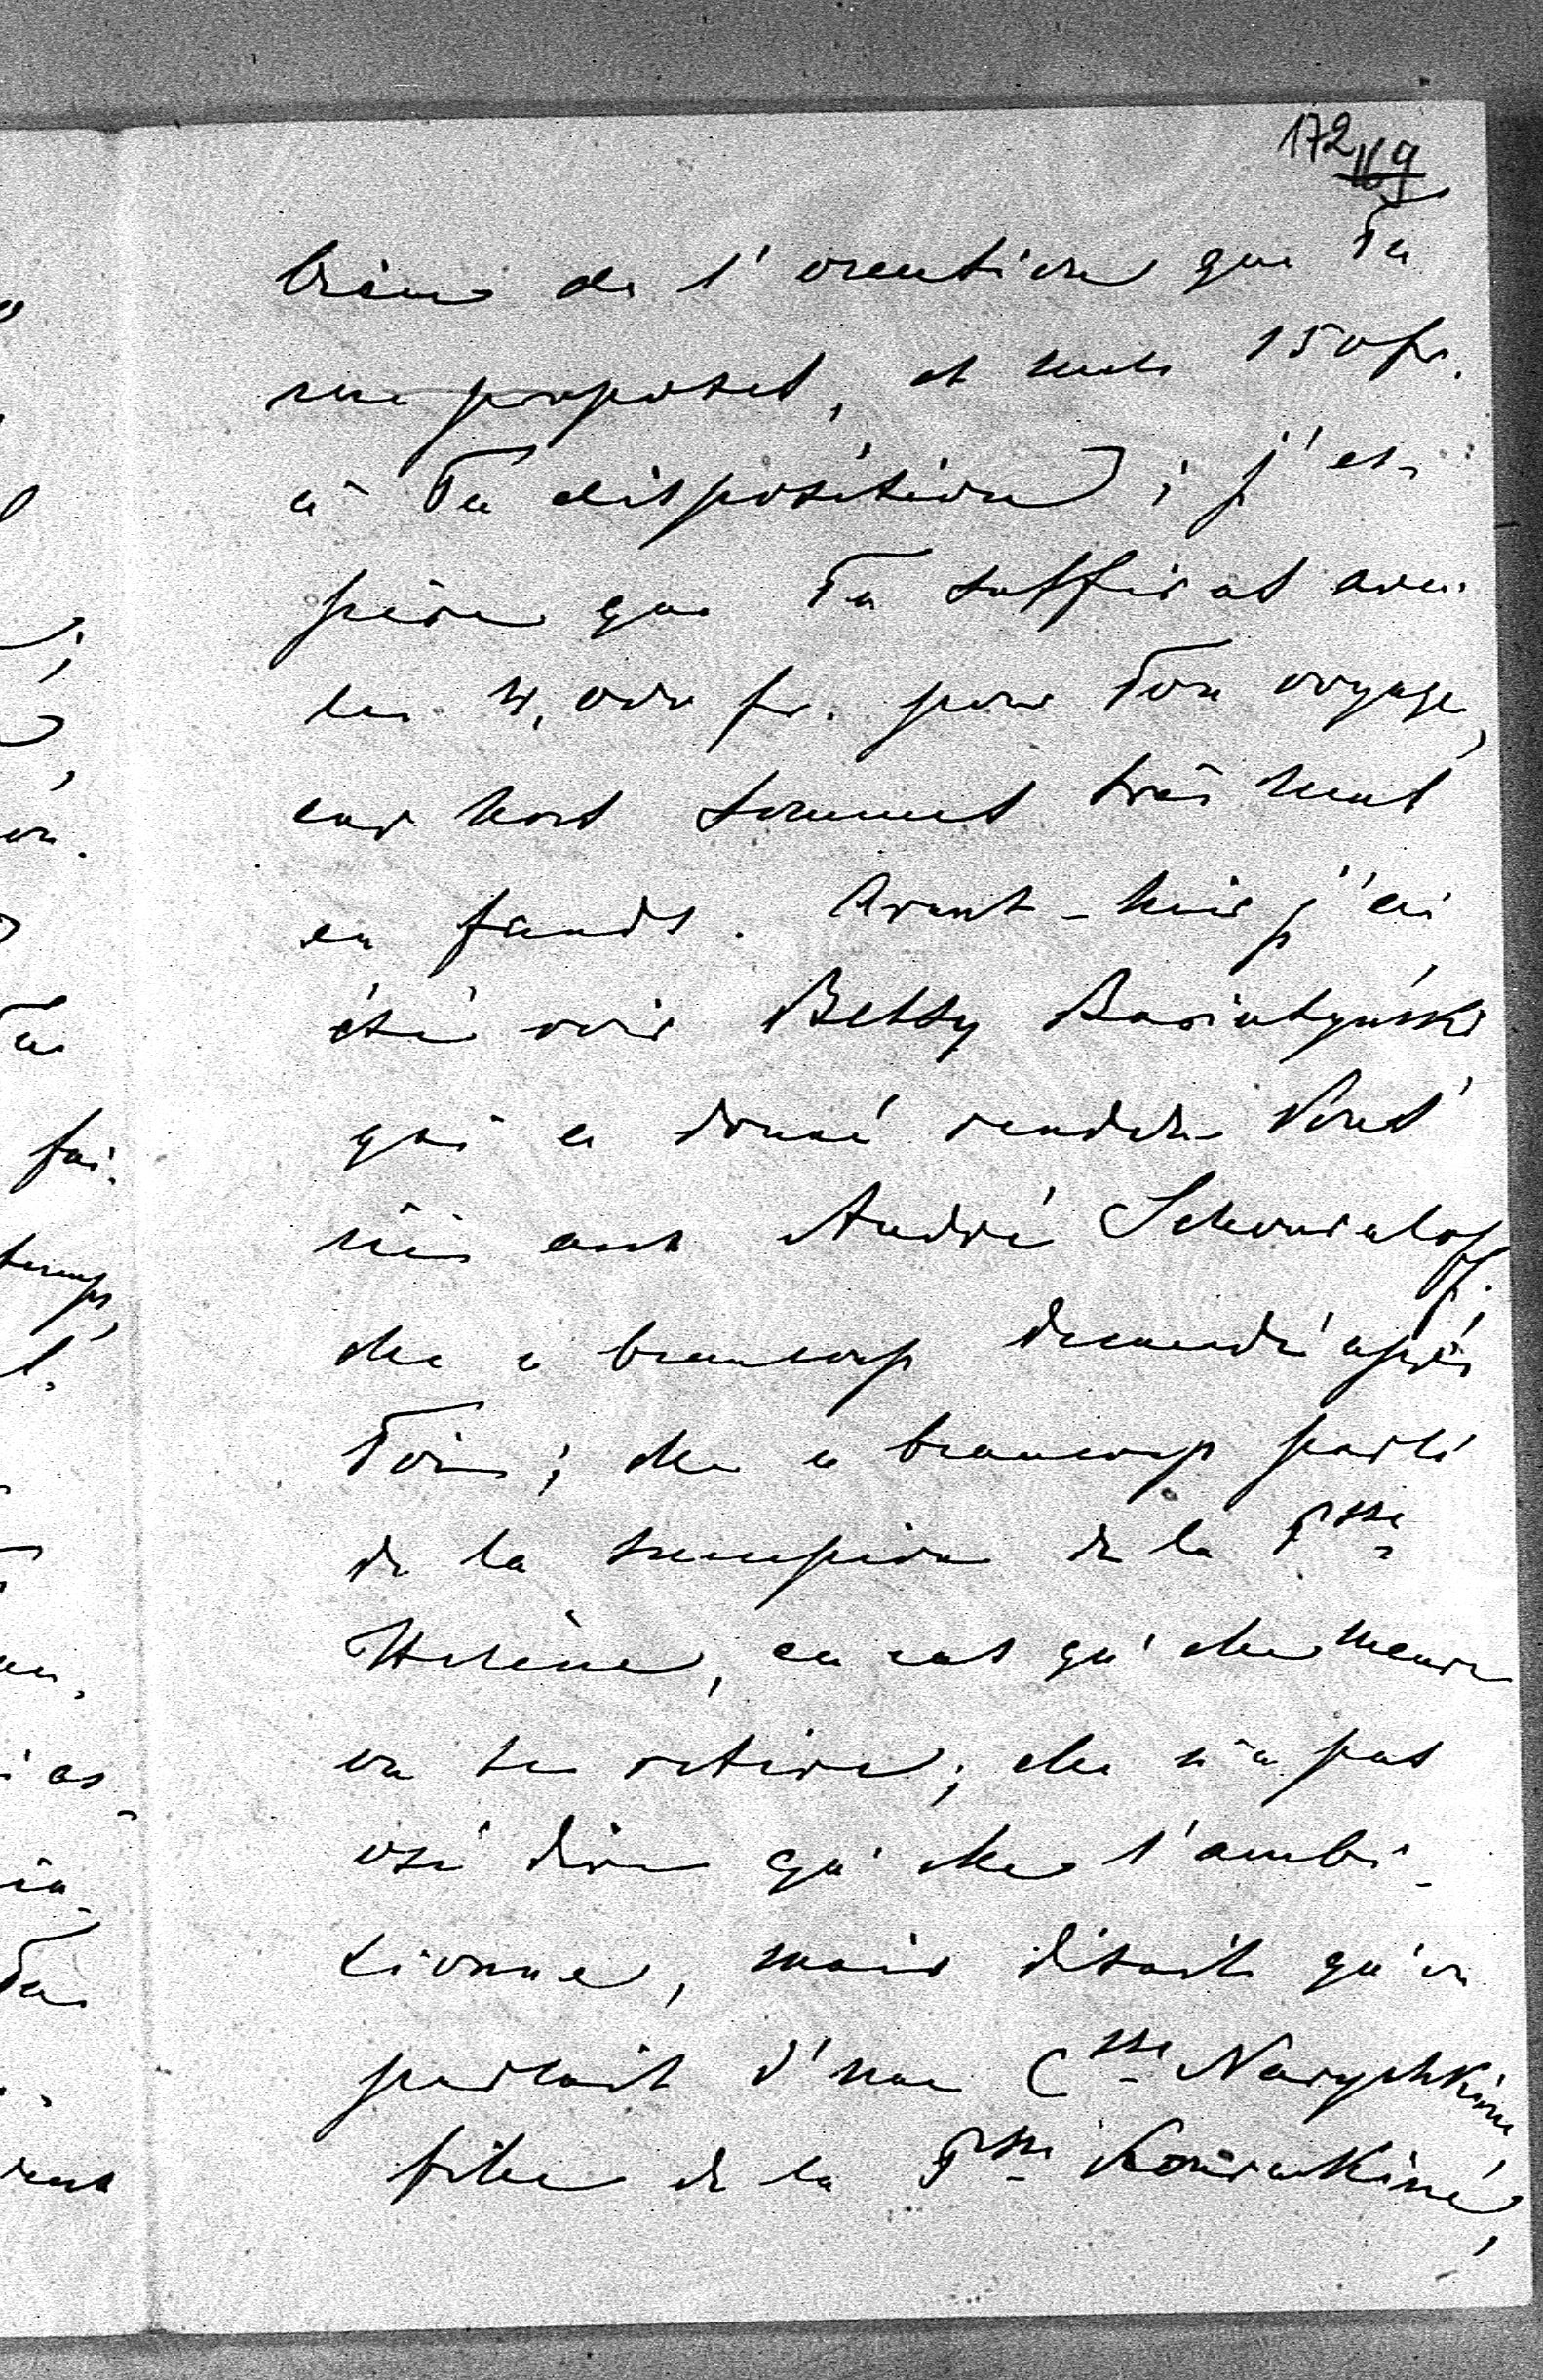 172 169
bième de l'oraention que Tu
me proposes, et mets 150 fr.
à Ta disposition; j'es-
père que Tu suffiras avec
les 4,000 fr. pour Ton voyage,
car nous sommes très mal
en fonds. Avant-hier j'ai
été voir Betsy Bariatynski
qui a donné rendez Vous
ici aux André Schouvaloff;
elle a beaucoup demandé après
Toi; elle a beaucoup parlé
de la succession de la Psse
Hélène, en cas qu'elle meure
ou se retire; elle n'a pas
osé dire qu'elle l'ambi-
tionne, mais disait qu'on
parlait d'une Csse Narychkine
fille de la Psse Kourakine,